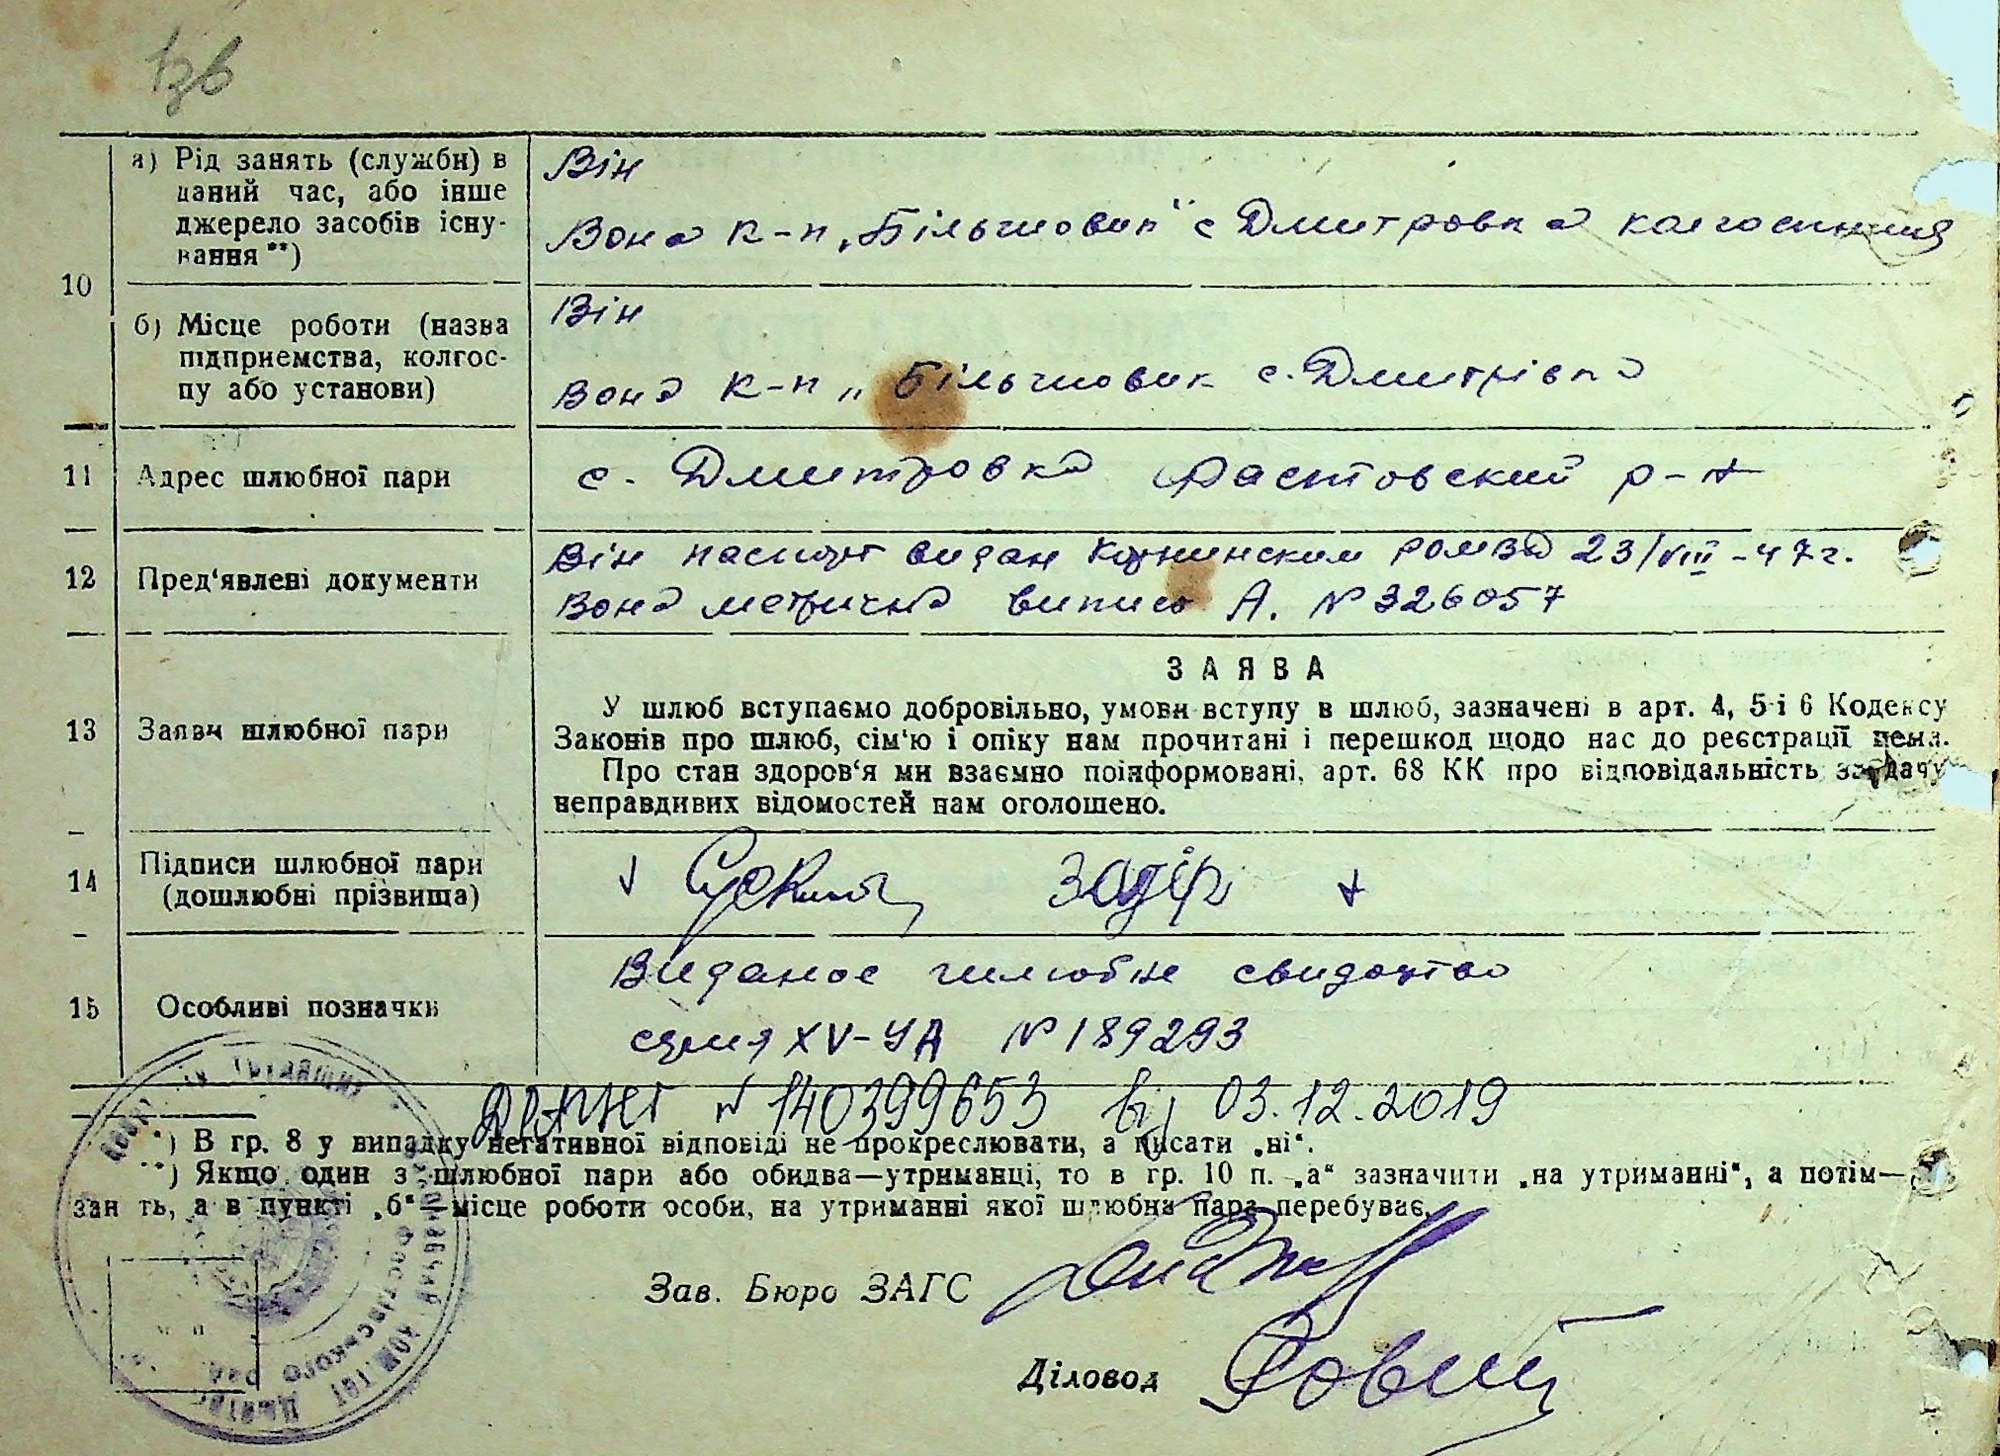 1зв
а) Рід занять (служби) в
даний час, або інше
джерело засобів існу-
вання**)
Він
Вона к-п „Більшовик" с Дмитровка колгоспниця
10
б) Місце роботи (назва
підприємства, колгос-
пу або установи)
Він
Вона к-п „Більшовик с. Дмитрівка
11 Адрес шлюбної пари
с. Дмитровка Фастовский р-н
12 Пред'явлені документи
Він паспорт видан РОМВД 23/VIII-47г.
Вона метрична випись А. № 326057
13 Заяви шлюбної пари
ЗАЯВА
У шлюб вступаємо добровільно, умови вступу в шлюб, зазначені в арт. 4, 5 і 6 Кодексу
Законів про шлюб, сім'ю і опіку нам прочитані і перешкод щодо нас до реєстрації нема.
Про стан здоров'я ми взаємно поінформовані, арт. 68 КК про відповідальність за дачу
неправдивих відомостей нам оголошено.
14 Підписи шлюбної пари
(дошлюбні прізвища)
15 Особливі позначки
Виданое шлюбне свидоцтво
серия XV-УА № 189293
ДРАЦСГ № 140399653 від 03.12.2019
*) В гр. 8 у випадку негативної відповіді не прокреслювати, а писати „ні".
**) Якщо один з шлюбної пари або обидва—утриманці, то в гр. 10 п. „а" зазначити „на утриманні", а потім—
занять, а в пункті „б"—місце роботи особи, на утриманні якої шлюбна пара перебуває.
Зав. Бюро ЗАГС
Діловод